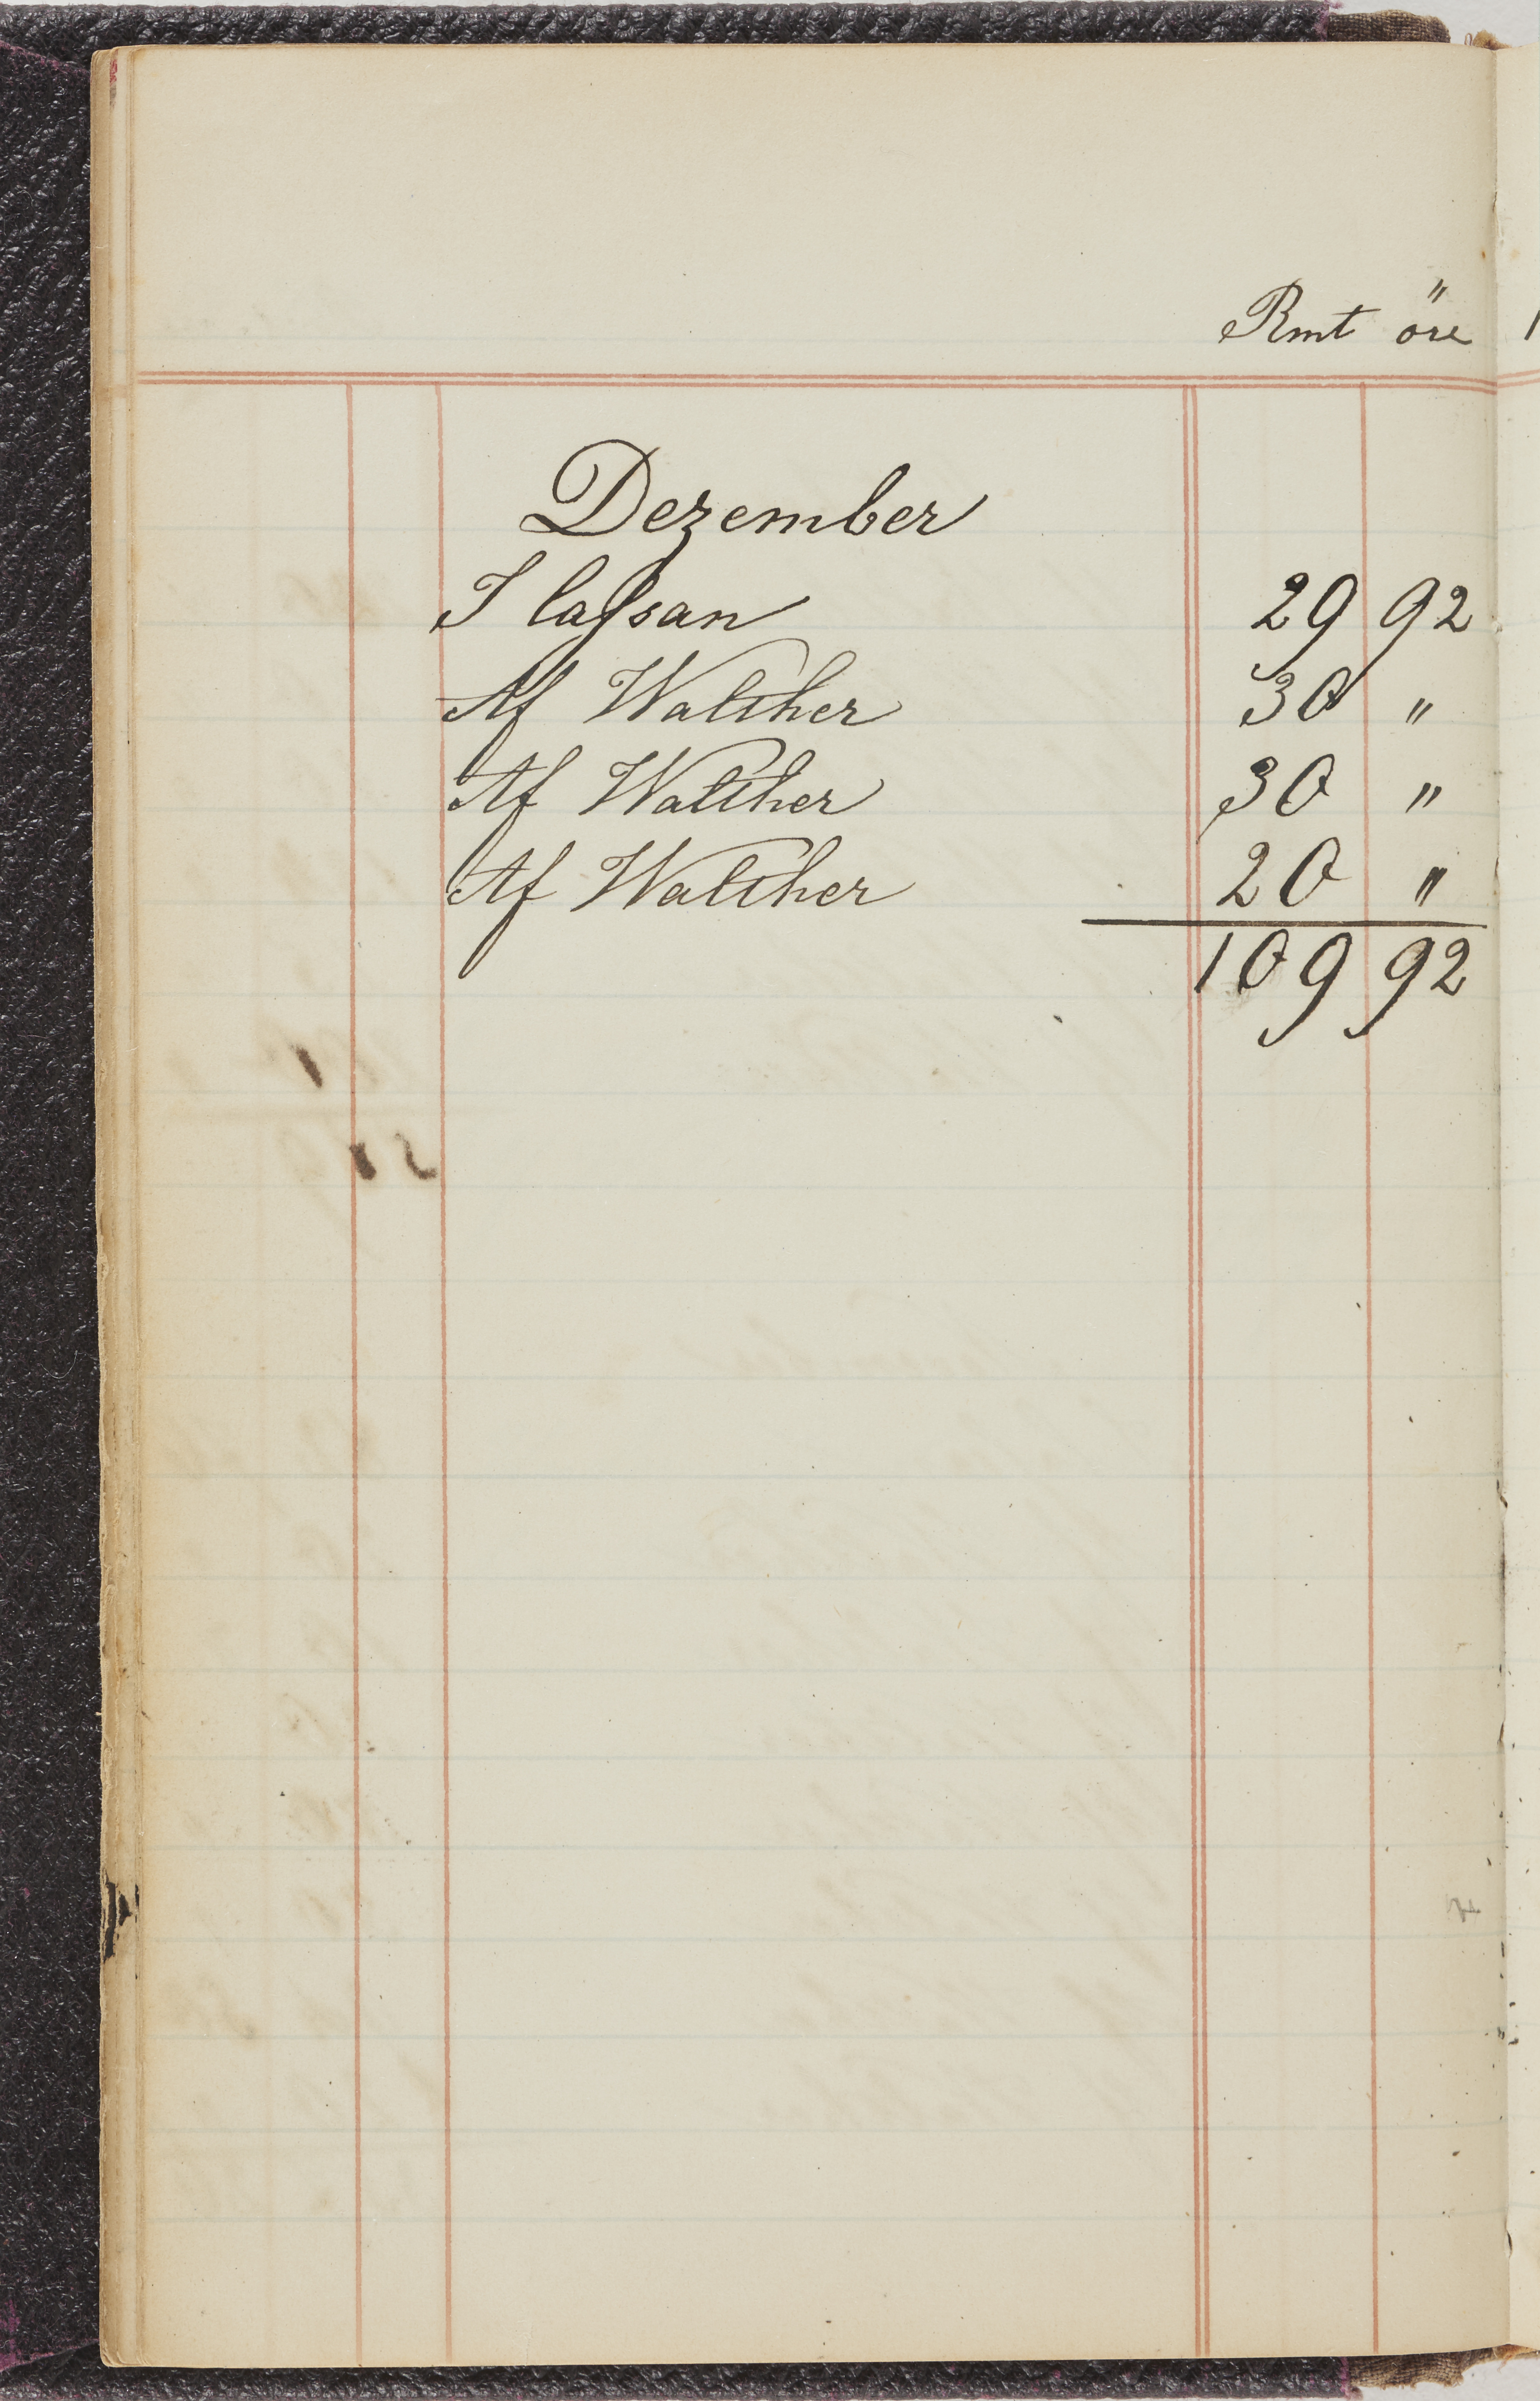 Rmt öre
Dezember
I Cassan 29 92
Af Walther 30 "
Af Walther 30 "
Af Walther 20 "
109 92